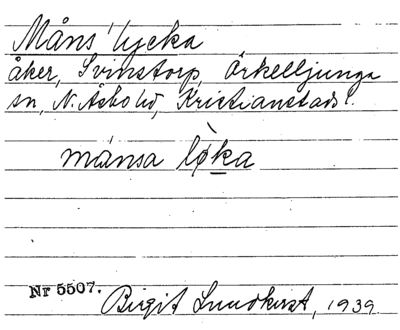 Måns' lycka
åker, Svinstorp, Örkelljunga
sn, N. Åsbo hd, Kristianstads l.
månsa lø̀ka
Nr 5507. Birgit Lundkvist, 1939.